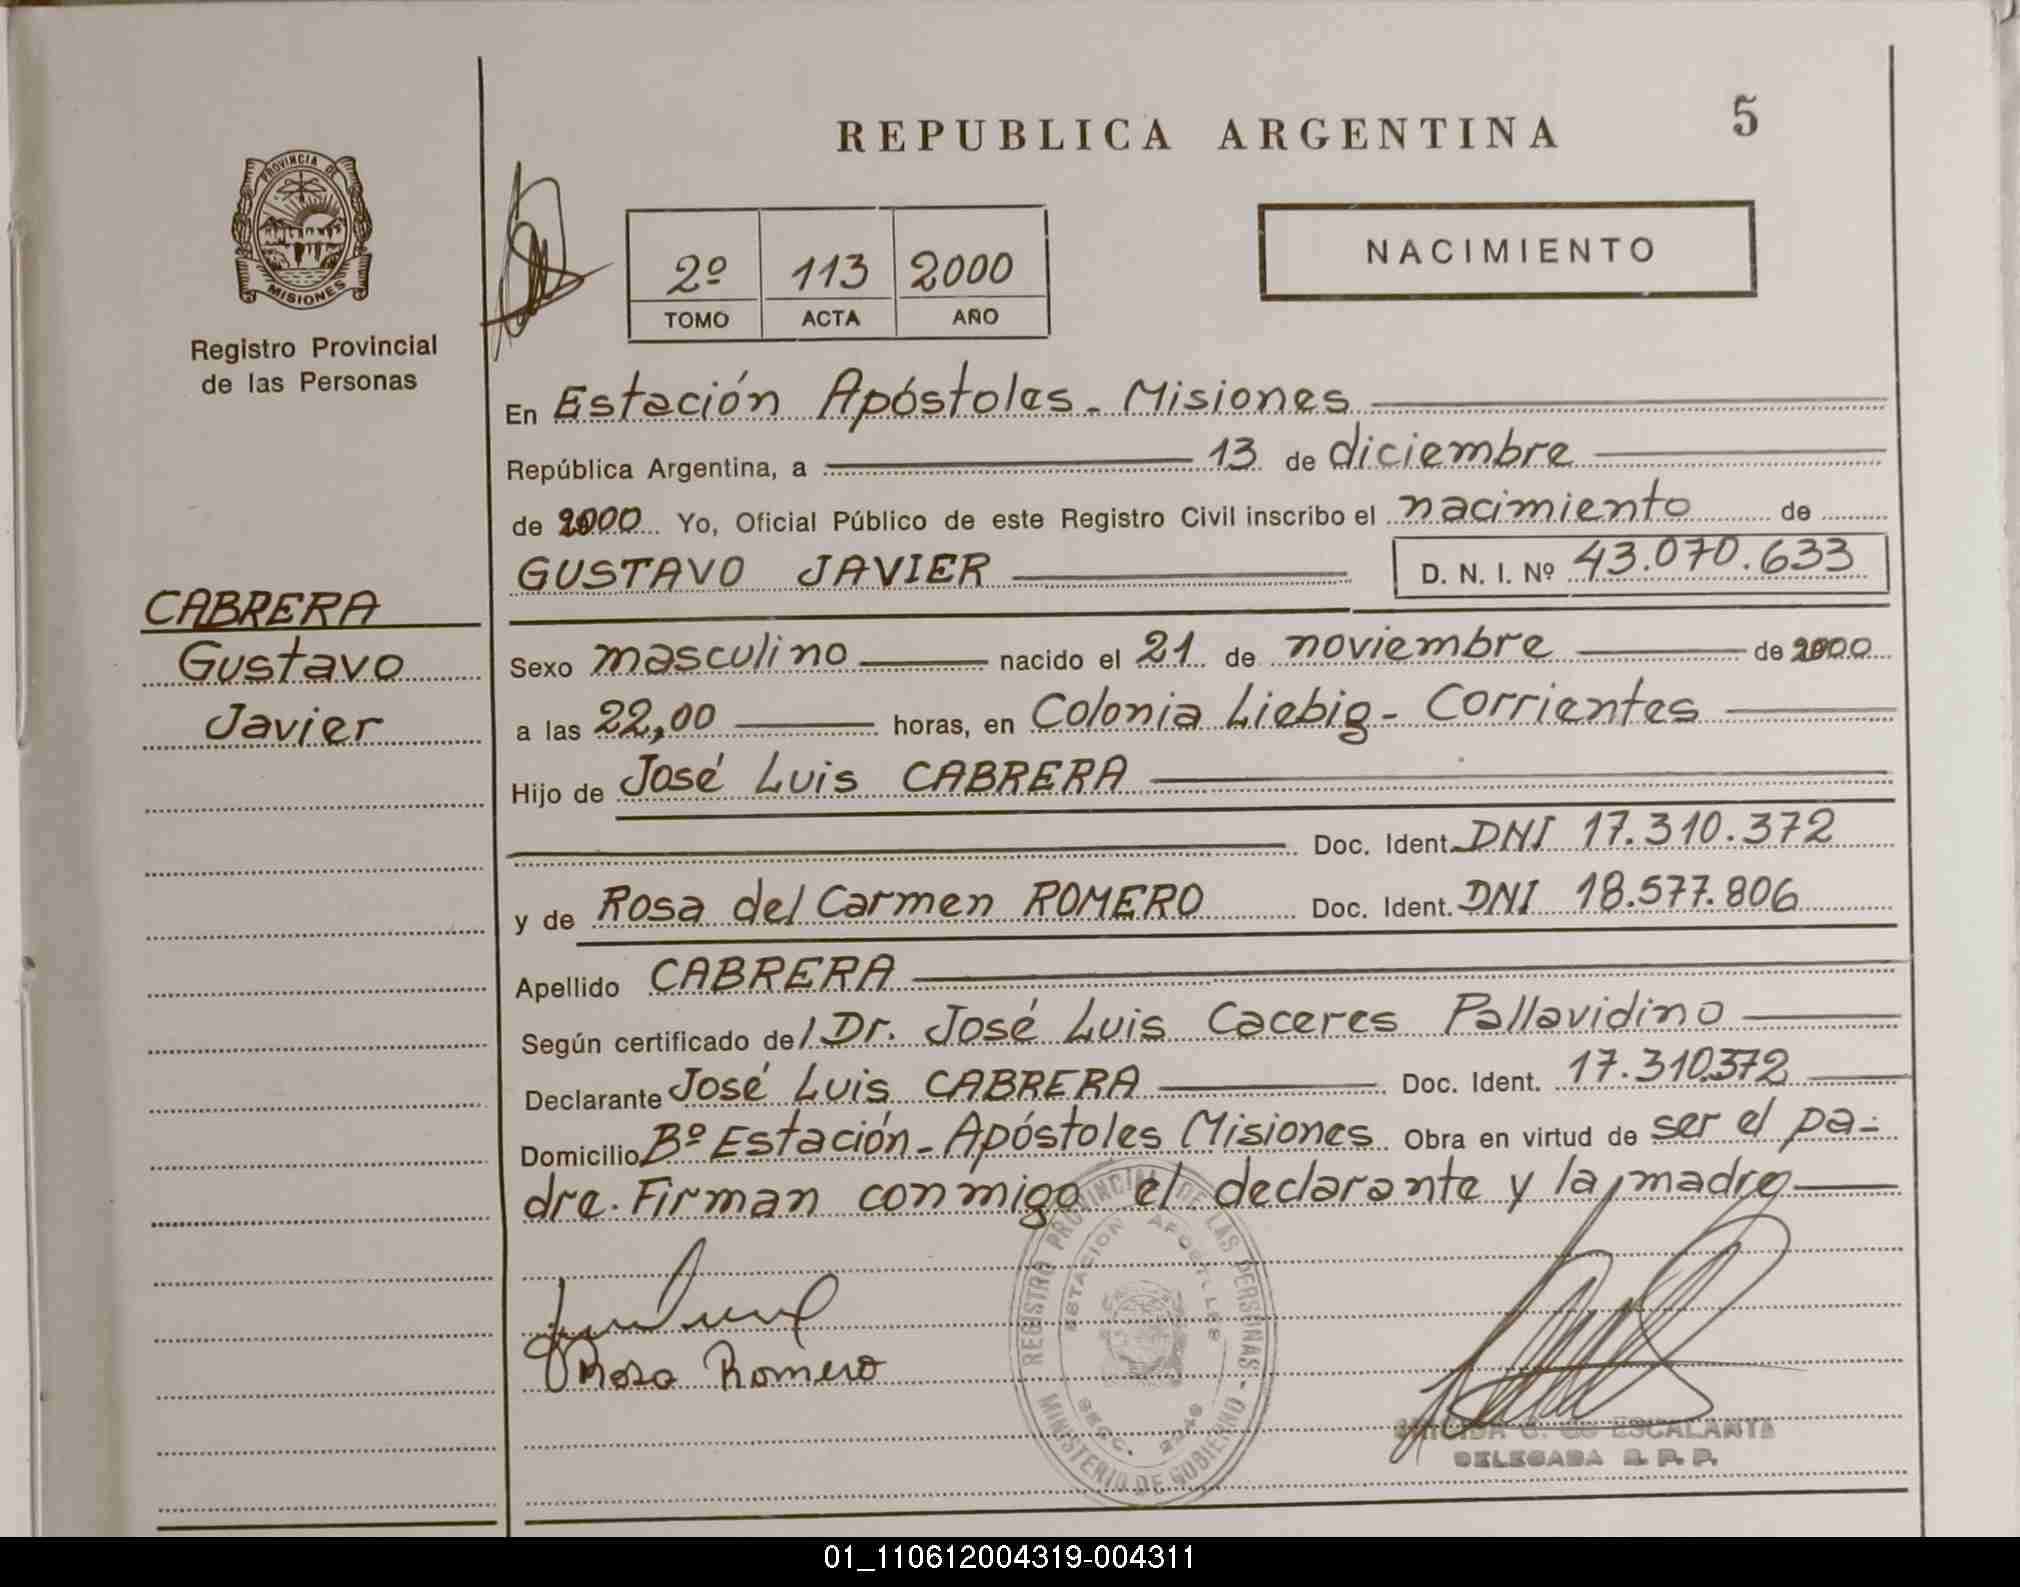 REPUBLICA ARGENTINA
5
PROVINCIA DE
MISIONES
Registro Provincial
de las Personas
NACIMIENTO
2º 113 2000
TOMO ACTA AÑO
En Estación Apóstoles - Misiones
República Argentina, a 13 de diciembre
de 2000 Yo, Oficial Público de este Registro Civil inscribo el nacimiento de
GUSTAVO JAVIER D. N. I. Nº 43.070.633
CABRERA
Gustavo
Javier
Sexo masculino nacido el 21 de noviembre de 2000
a las 22,00 horas, en Colonia Liebig - Corrientes
Hijo de José Luis CABRERA
Doc. Ident. DNI 17.310.372
y de Rosa del Carmen ROMERO Doc. Ident. DNI 18.577.806
Apellido CABRERA
Según certificado del Dr. José Luis Caceres Pallavidino
Declarante José Luis CABRERA Doc. Ident. 17.310.372
Domicilio Bº Estación - Apóstoles Misiones Obra en virtud de ser el pa-
dre. Firman conmigo el declarante y la madre
Rosa Romero
REGISTRO PROVINCIAL DE LAS PERSONAS - MINISTERIO DE GOBIERNO
ESTACION APOSTOLES
SECC.
ESCALANTE
DELEGADA R. P. P.
01_110612004319-004311